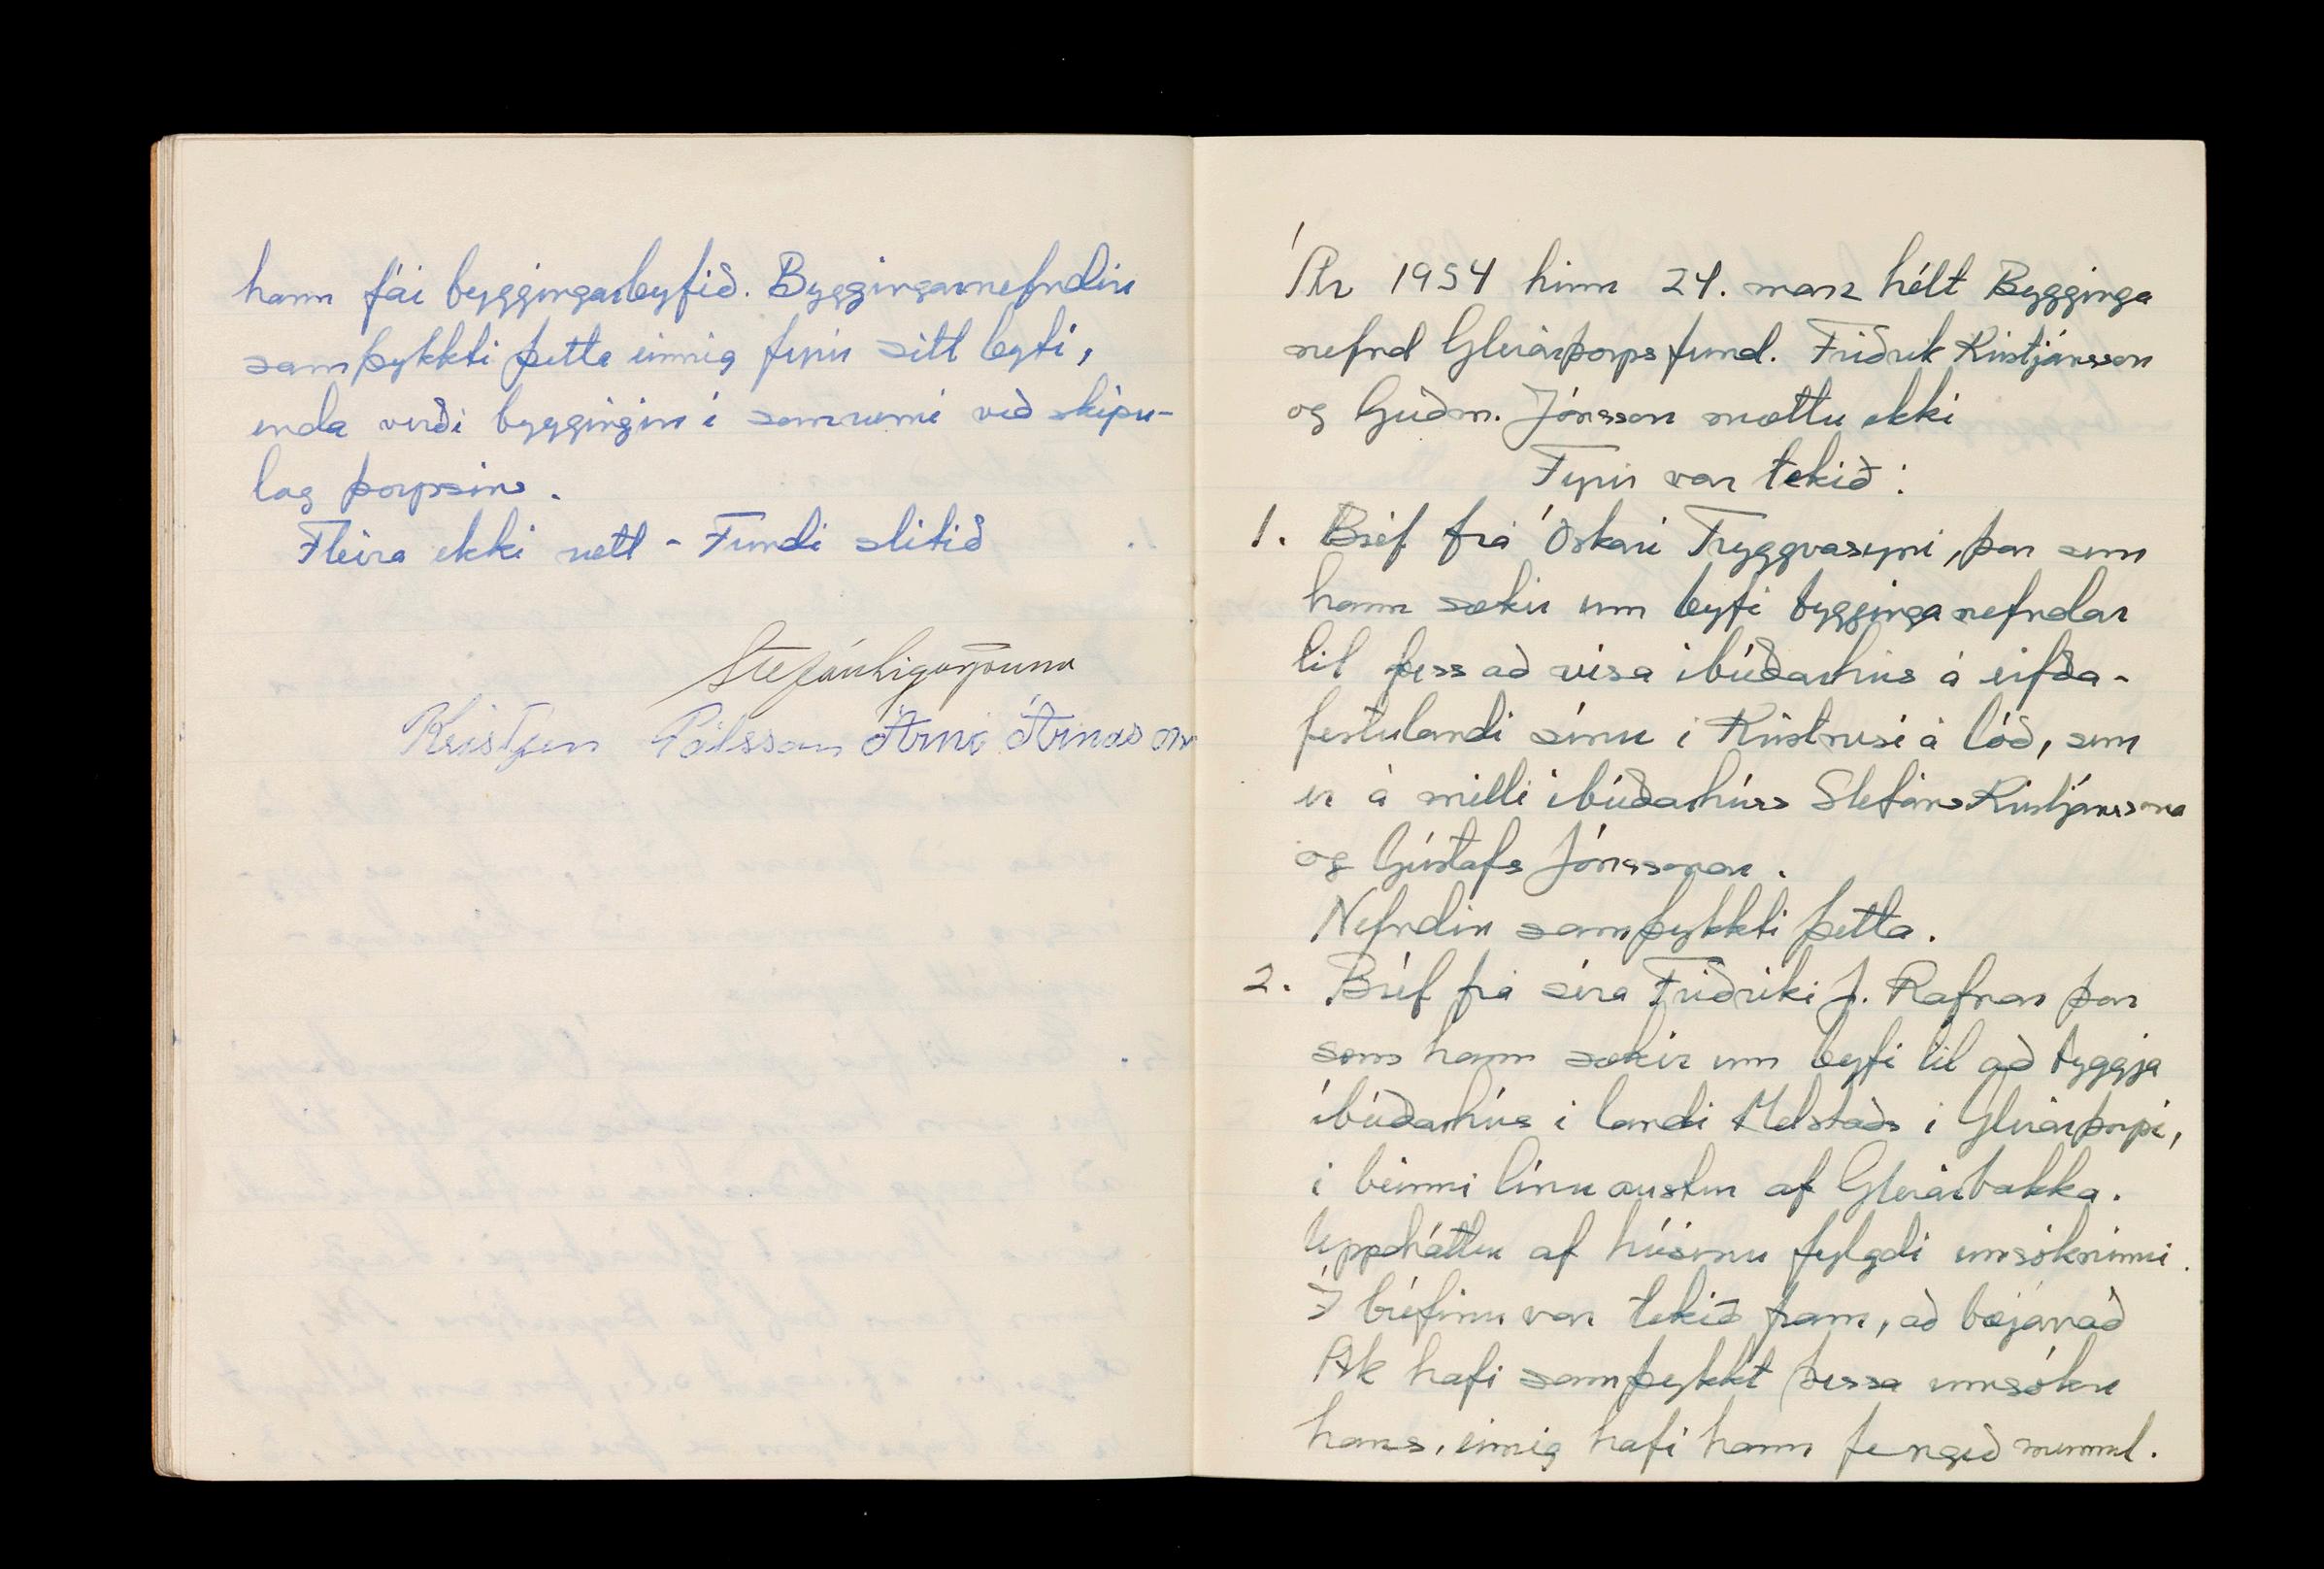 hann fái byggingarleyfið. Byggingarnefndin
samþykkti þetta einnig fyrir sitt leyti,
enda verði byggingin í samræmi við skipu-
lag þorpsins.
Fleira ekki rætt - Fundi slitið
Kristján Pálsson Árni Árnason
Ár 1954 hinn 24. marz hélt Bygginga
nefnd Glerárþorps fund. Friðrik Kristjánsson
og Guðm. Jónsson mættu ekki
Fyrir var tekið:
1. Bréf frá Óskari Tryggvasyni, þar sem
hann sækir um leyfi bygginganefndar
til þess að reisa íbúðarhús á erfða-
festulandi sínu í Kristnesi á lóð, sem
er á milli íbúðarhúss Stefáns Kristjánssonar
og Gústafs Jónssonar.
Nefndin samþykkti þetta.
2. Bréf frá séra Friðriki J. Rafnar þar
sem hann sækir um leyfi til að byggja
íbúðarhús í landi Melstaðs í Glerárþorpi,
í beinni línu austur af Glerárbakka.
Uppdráttur af húsinu fylgdi umsókninni.
Í bréfinu var tekið fram, að bæjarráð
Ak hafi samþykkt þessa umsókn
hans, einnig hafi hann fengið munnl.